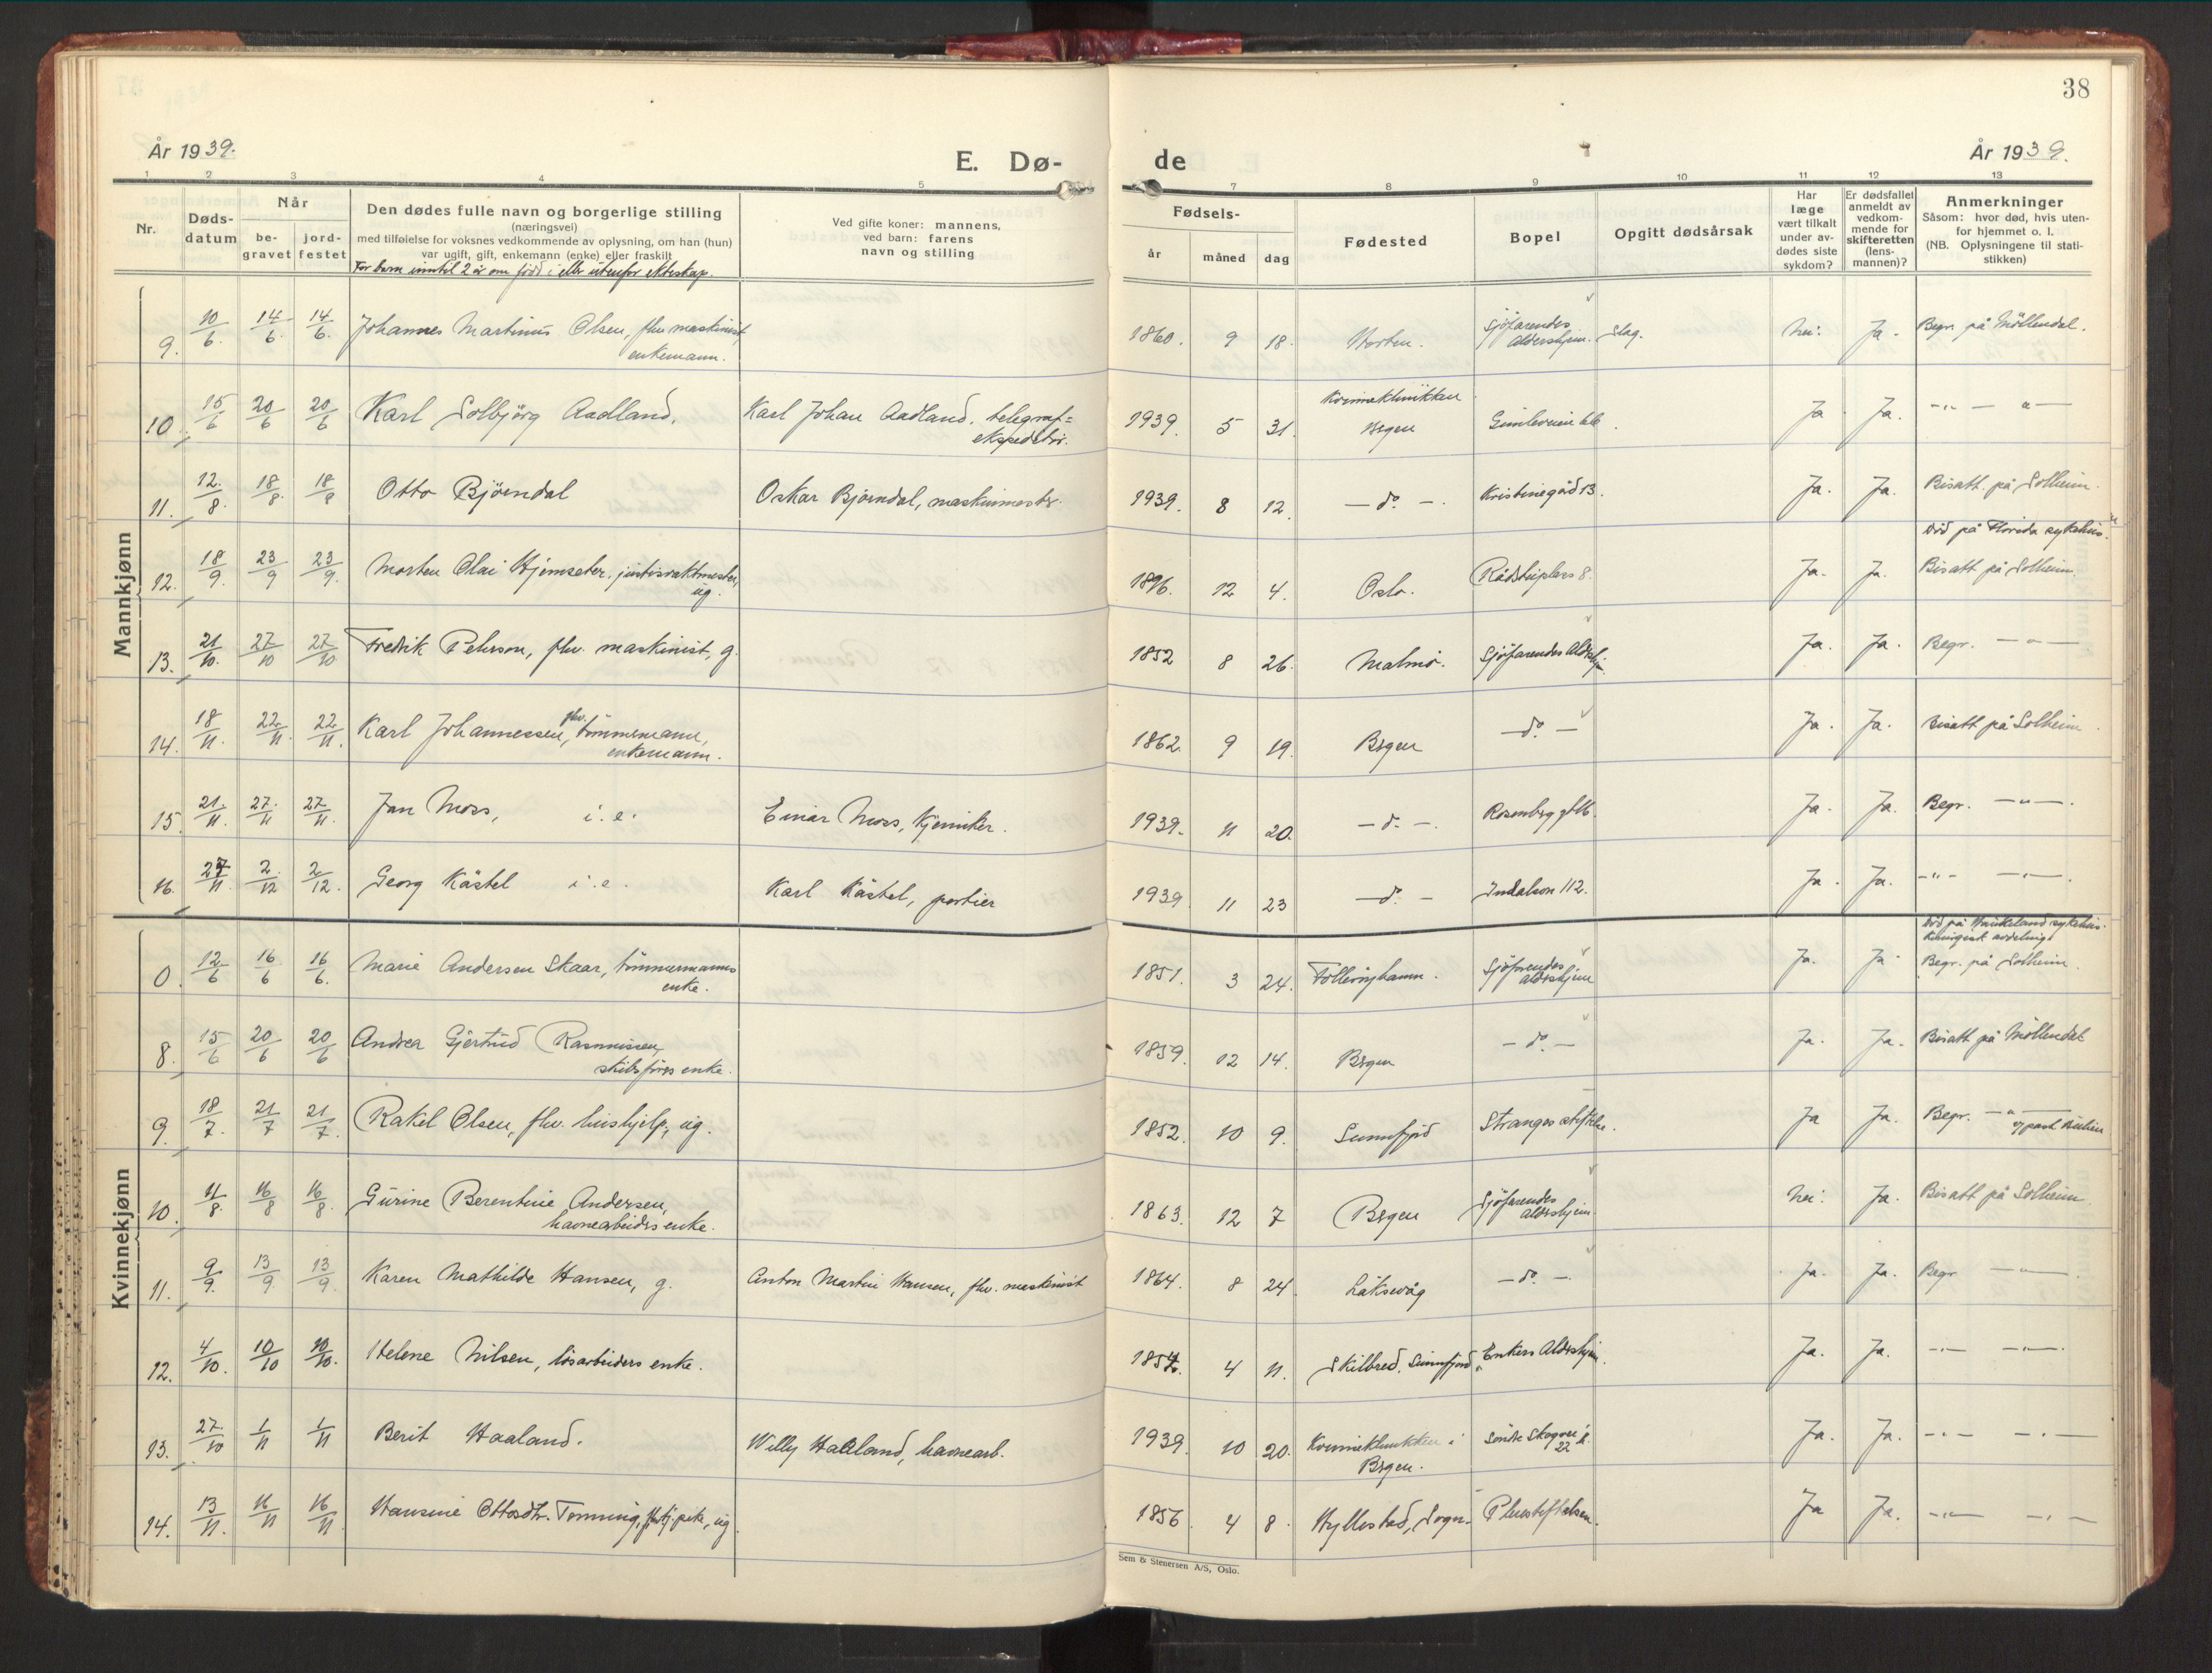 38
År 1939.
E. Dø-
de
År 1939.
1 2 3 4 5 7 8 9 10 11 12 13
Nr.
Døds-
datum
Når
be-
gravet
jord-
festet
Den dødes fulle navn og borgerlige stilling
(næringsvei)
med tilføielse for voksnes vedkommende av oplysning, om han (hun)
var ugift, gift, enkemann (enke) eller fraskilt
For barn inntil 2 år om født i eller utenfor ekteskap.
Ved gifte koner: mannens,
ved barn: farens
navn og stilling
Fødsels-
år
måned
dag
Fødested
Bopel
Opgitt dødsårsak
Har
læge
vært tilkalt
under av-
dødes siste
sykdom?
Er dødsfallet
anmeldt av
vedkom-
mende for
skifteretten
(lens-
mannen)?
Anmerkninger
Såsom: hvor død, hvis uten-
for hjemmet o. l.
(NB. Oplysningene til stati-
stikken)
Mannkjønn
9. 10/6. 14/6. 14/6. Johannes Martinus Olsen, fhv. maskinist,
enkemann.
1860. 9 18. Horten. Sjöfarendes
Aldershjem. Slag. Nei. Ja. Begr. på Möllendal.
10. 15/6 20/6 20/6 Karl Solbjörg Aadland. Karl Johan Aadland. telegraf=
ekspeditör.
1939. 5 31. Kvinneklinikken
Bergen Gimleveien Ja Ja. -"- — " —
11. 12./8. 18/8. 18/8 Otto Björndal Oskar Björndal, maskinmester.
1939. 8 12. — do. —. Kristinegård 13. Ja. Ja. Bisatt. på Solheim.
12. 18/9. 23/9 23/9. Morten Olai Hjemseter, justisvaktmester,
ug.
1896. 12 4. Oslo. Rådstuplass 8. Ja. Ja. Död på Florida sykehus.
Bisatt på Solheim.
13. 21/10. 27/10 27/10 Fredrik Pehrson, fhv. maskinist, g.
1852 8 26. Malmö. Sjöfarendes Aldershjem. Ja. Ja. Begr. — " —
14. 18/11. 22/11. 22/11. Karl Johannessen, fhv. tömmermann,
enkemann.
1862. 9 19. Bergen — do. — Ja. Ja. Bisatt på Solheim.
15. 21./11. 27./11 27./11. Jan Moss, i. e. Einar Moss, kjemiker.
1939. 11 20. — do. —. Rosenberggt Ja. Ja. Begr. — " —.
16. 27/11. 2./12 2/12. Georg Kästel i. e. Karl Kästel, portier
1939. 11 23 — do. — Indalson 112. Ja. Ja. -"- — " —.
Kvinnekjønn
0. 12./6 16/6 16/6. Marie Andersen Skaar, tömmermanns
enke.
1851. 3 24. Sjöfarendes
aldershjem Ja. Ja Död på Haukeland sykehus.
Kirurgisk avdeling.
Begr. på Solheim.
8. 15/6 20/6 20/6 Andrea Gjertrud Rasmussen,
skibsförers enke.
1859. 12 14. Bergen — do. — Ja. Ja. Bisatt på Möllendal
9. 18/7. 21/7 21/7. Rakel Olsen, fhv. hushjelp, ug.
1852. 10 9. Sunnfjord Stranges stiftelse. Ja Ja. Begr. — " —
10. 11/8. 16/8 16/8. Gurine Berentine Andersen,
havnearbeiders enke.
1863. 12 7 Bergen Sjöfarendes
aldershjem. Nei. Ja. Bisatt på Solheim
11. 9/9. 13/9. 13/9. Karen Mathilde Hansen, g. Anton Martin Hansen, fhv. maskinist
1864. 8 24. Laksevåg — do. —. Ja. Ja. Begr — " —.
12. 4/10. 10/10 10/10. Helene Nilsen, lösarbeiders enke.
1854. 4 11. Skilbred. Sunnfjord Enkers Aldershjem. Ja. Ja. -"- — " —.
13. 27./10 1/11 1/11 Berit Haaland. Willy Haaland, havnearb.
1939. 10 20. Kvinneklinikken i
Bergen. Söndre Skogvei
22 Ja. Ja. -"- — " —
14. 13/11. 16/11 16/11 Hansine Ottosdtr. Tonning, ug
1856 4 8. Hyllestad, Sogn. Ja Ja. -"- — " —
Sem & Stenersen A/S, Oslo.